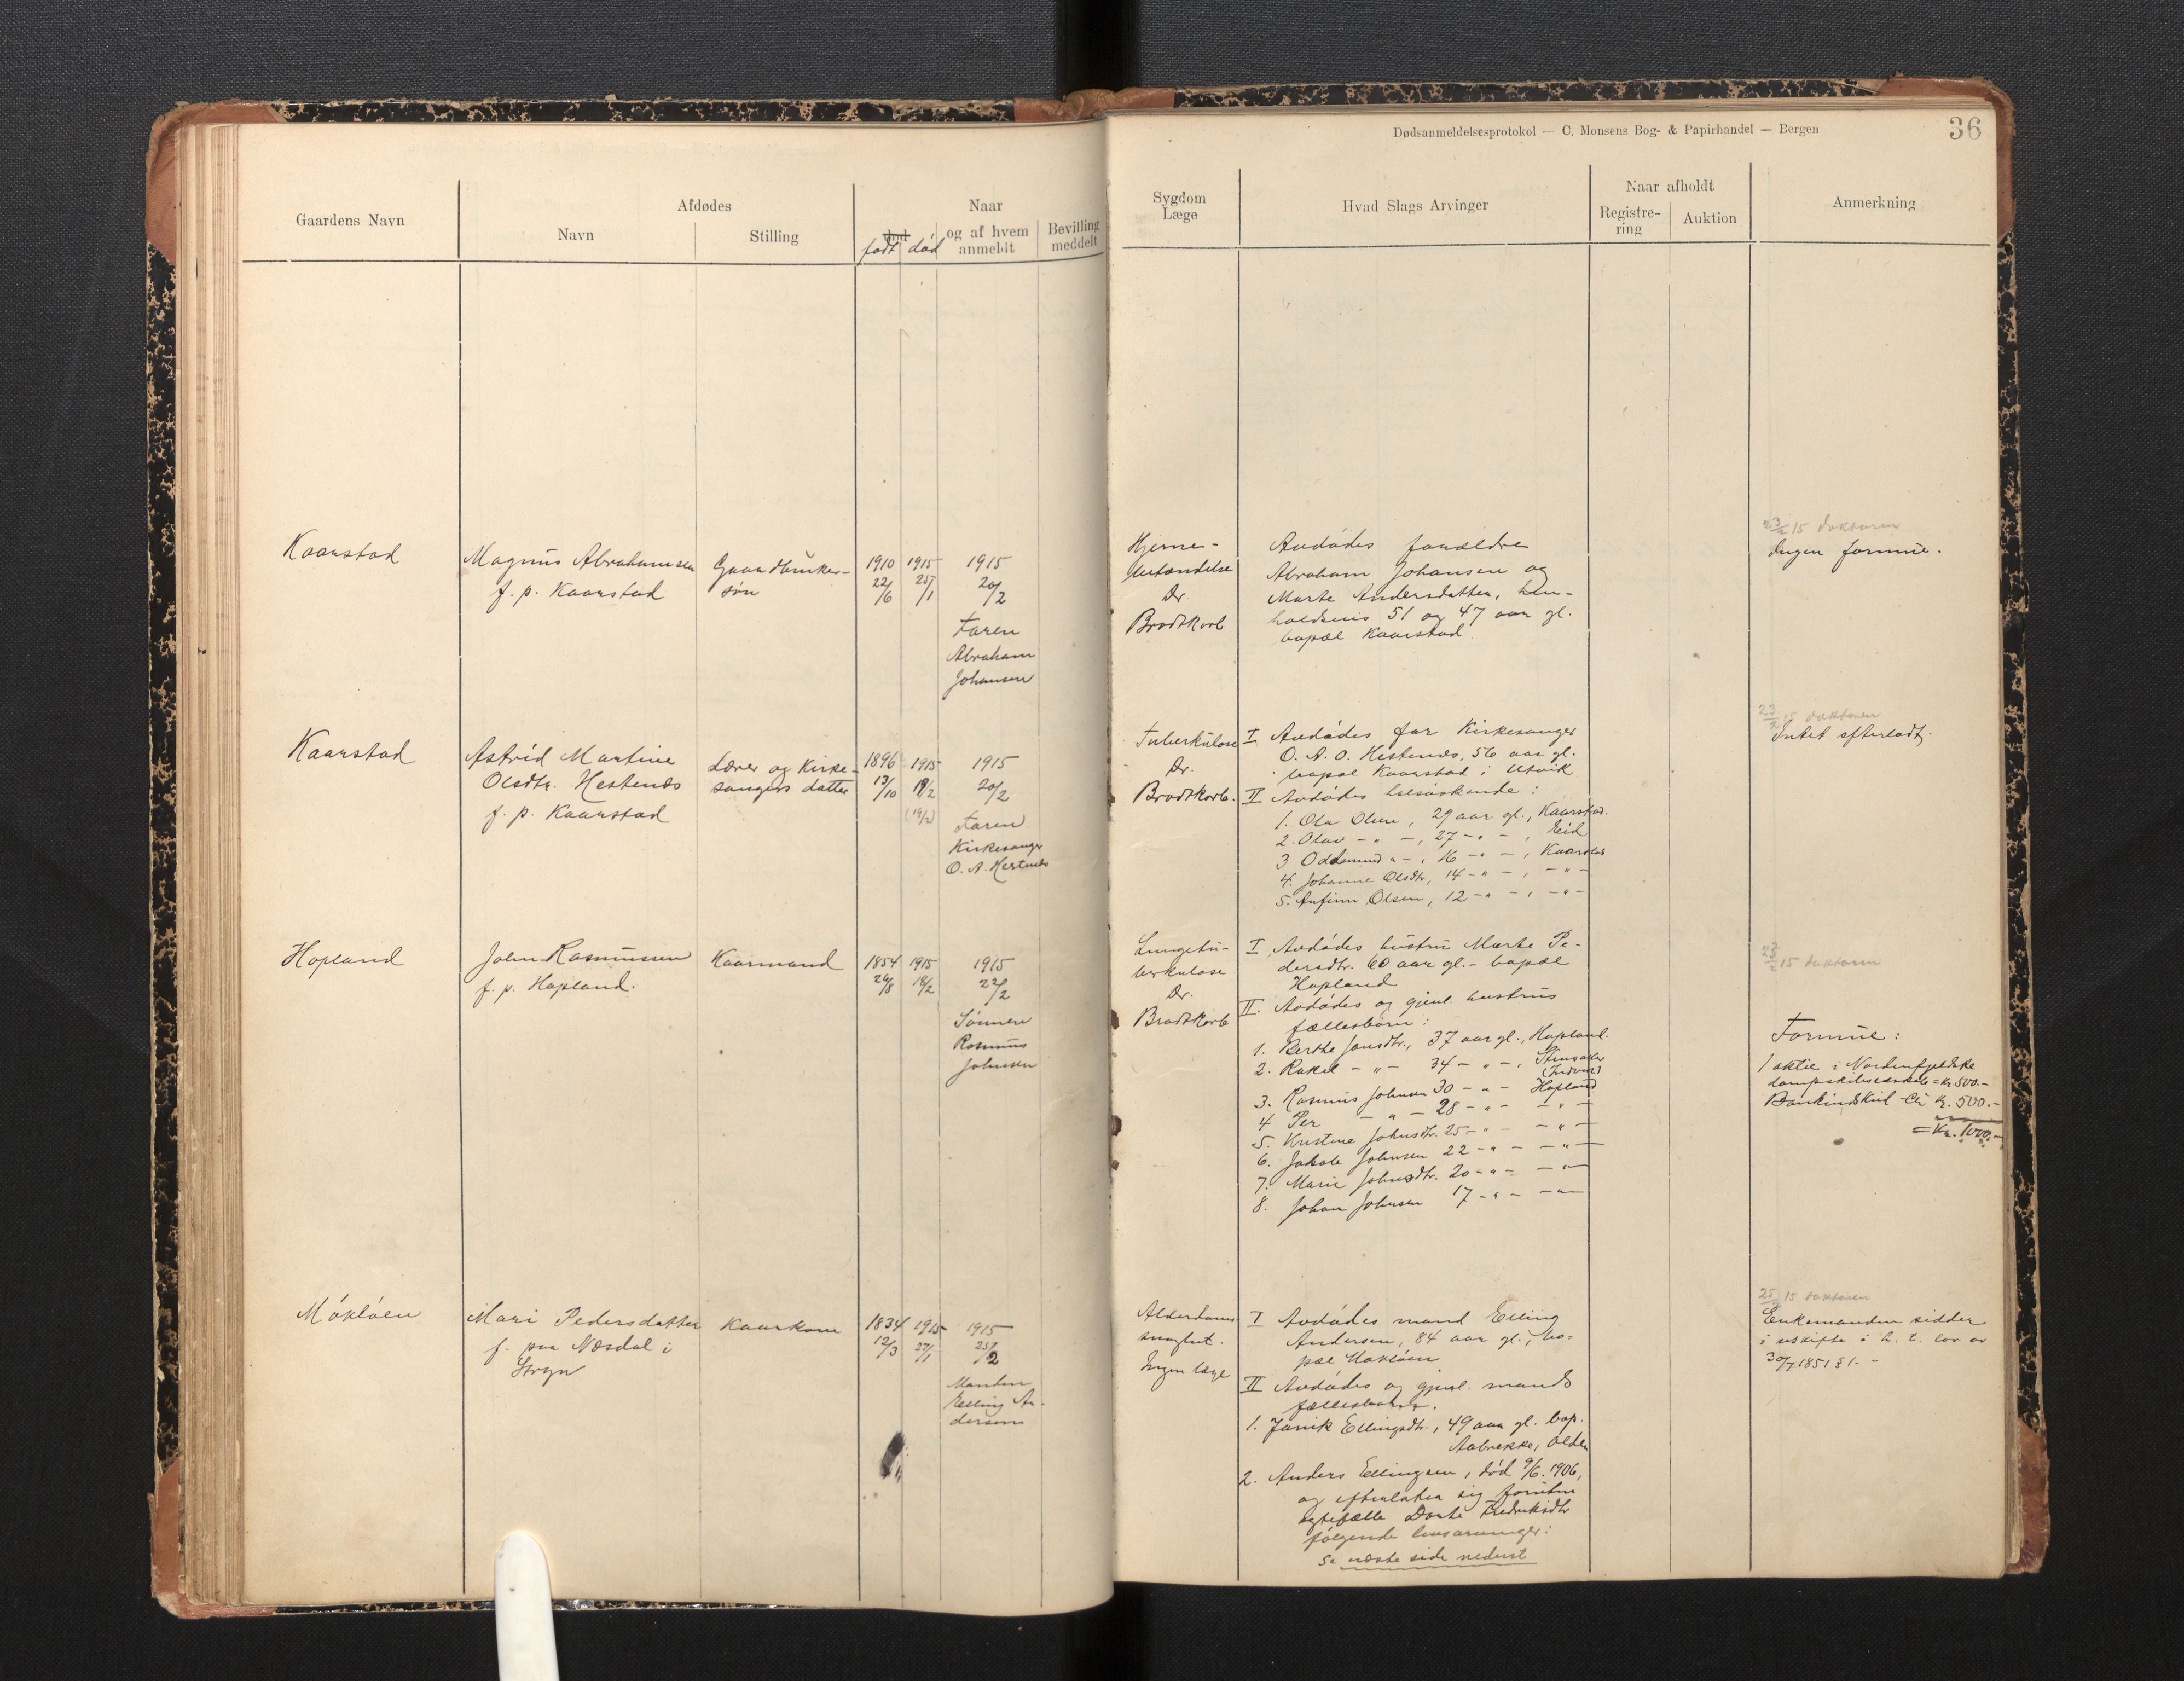 Dødsanmeldelsesprotokol — C. Monsens Bog- & Papirhandel — Bergen
36
Gaardens Navn
Afdødes
Navn
Stilling
Naar
født død
og af hvem
anmeldt
Bevilling
meddelt
Sygdom
Læge
Hvad Slags Arvinger
Naar afholdt
Registre-
ring
Auktion
Anmerkning
Kaarstad
Magnus Abrahamsen
f. p. Kaarstad
Gaardbruker-
søn
1910
22/6
1915
25/1
1915
20/2
Faren
Abraham
Johansen
Hjerne-
betændelse
Dr.
Brodtkorb
Avdødes forældre
Abraham Johansen og
Marte Andersdatter, hen-
holdsvis 51 og 47 aar gl.
bopæl Kaarstad
23/2 15 doktoren
Ingen formue.
Kaarstad
Astrid Martine
Olsdtr. Hestenes
f. p. Kaarstad
Lærer og Kirke-
sangers datter
1896
13/10
1915
19/2
(19/2)
1915
20/2
Faren
Kirkesanger
O. A. Hestenes
Tuberkulose
Dr.
Brodtkorb.
I Avdødes far Kirkesanger
O. A. O. Hestenes, 56 aar gl.
bopæl Kaarstad i Utvik
II Avdødes helsøskende:
1. Ola Olsen, 29 aar gl., Kaarstad.
2. Olav - " -, 27 - " - , Eid
3 Oddmund " - , 16 - " - , Kaarstad
4. Johanne Olsdtr, 14 - " - , - " -
5. Anfinn Olsen, 12 - " - , - " -
23/2 15 doktoren
Intet efterladt.
Hopland
John Rasmussen
f. p. Hopland.
Kaarmand
1854
26/8
1915
18/2
1915
22/2
Sønnen
Rasmus
Johnsen
Lungetu-
berkulose
Dr.
Brodtkorb
I Avdødes hustru Marte Pe-
dersdtr. 60 aar gl. - bopæl
Hopland
II. Avdødes og gjenl. hustrus
fællesbørn:
1. Berthe Jonsdtr., 37 aar gl., Hopland.
2. Rakel - " - 34 - " - ,
3. Rasmus Johnsen 30 - " - Hopland
4 Per - " - 28 - " - - " -
5. Kristine Johnsdtr. 25 - " - - " -
6. Jakob Johnsen 22 - " - - " -
7. Marie Johnsdtr. 20 - " - - " -
8. Johan Johnsen 17 - " - - " -
23/2 15 doktoren
Formue:
1 aktie i Nordenfjeldske
dampskibsselskab = kr. 500.-
Bankindskud kr. 500.-
= Kr. 1000.-
Mökløen
Mari Pedersdatter
f. paa Næsdal i
Stryn
Kaarkone
1834
12/3
1915
27/1
1915
25/2
Manden
Elling An-
dersen
Alderdoms
svaghet.
Ingen læge
I Avdødes mand Elling
Andersen, 84 aar gl., bo-
pæl Mökløen
II Avdødes og gjenl. mands
fællesbørn.
1. Janik Ellingsdtr., 49 aar gl. bop.
Aabrekke, Olden
2. Anders Ellingsen, død 9/6. 1906,
og efterlater sig foruten
egtefælle Dorte Fredriksdtr
følgende livsarvinger:
Se næste side nederst
25/2 15 doktoren
Enkemanden sidder
i uskifte i h. t. lov av
30/7 1851 § 1. -